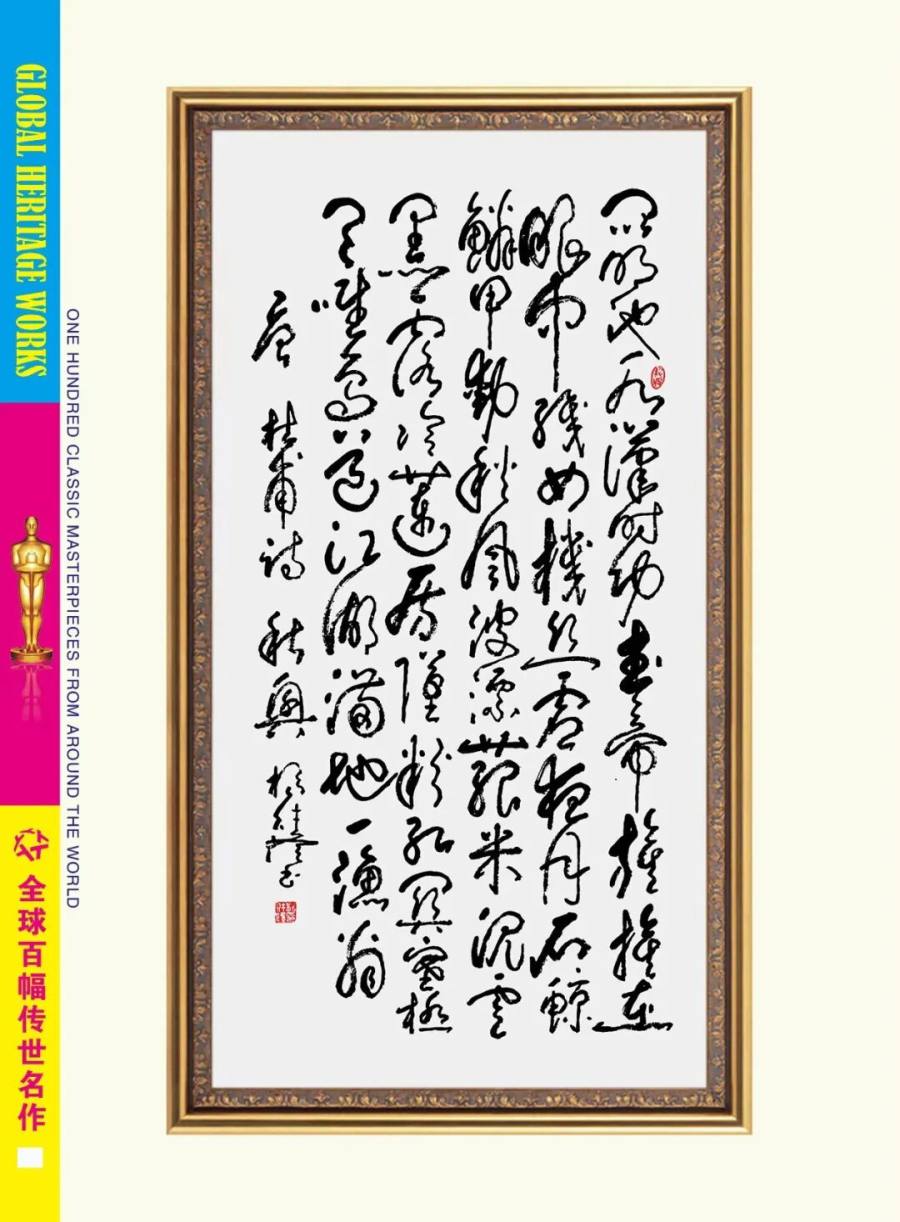 GLOBAL HERITAGE WORKS
ONE HUNDRED CLASSIC MASTERPIECES FROM AROUND THE WORLD
全球百幅传世名作
昆明池水漢時功武帝旌旗在
眼中織女機絲虛夜月石鯨
鱗甲動秋風波漂菰米沉雲
黑露冷蓮房墜粉紅關塞極
天唯鳥道江湖滿地一漁翁
唐 杜甫詩 秋興 書